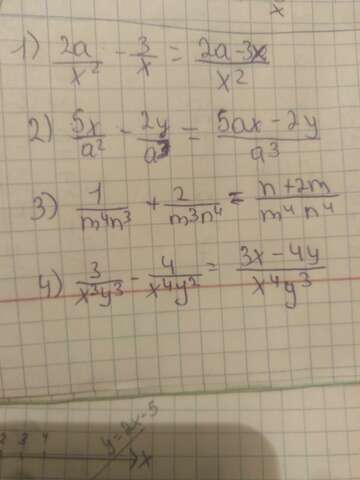 x
1) 2a/x² - 3/x = 2a-3x/x²
2) 5x/a² - 2y/a³ = 5ax-2y/a³
3) 1/m⁴n³ + 2/m³n⁴ = n+2m/m⁴n⁴
4) 3/x³y³ - 4/x⁴y² = 3x-4y/x⁴y³
y=2x-5
2 3 4 x